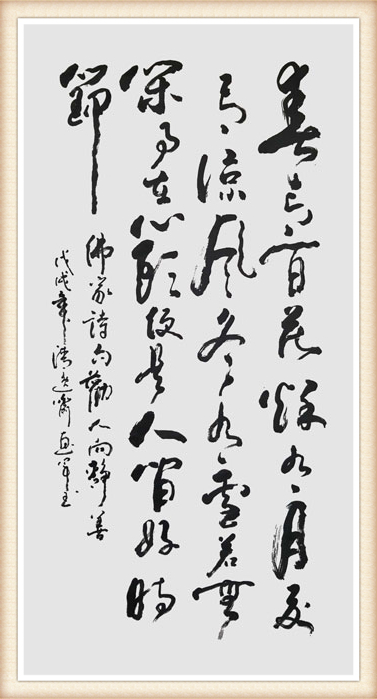 春有百花秋有月夏
有涼風冬有雪若無
閑事在心頭便是人間好時
節
佛家詩句勸人向靜善
戊戌年